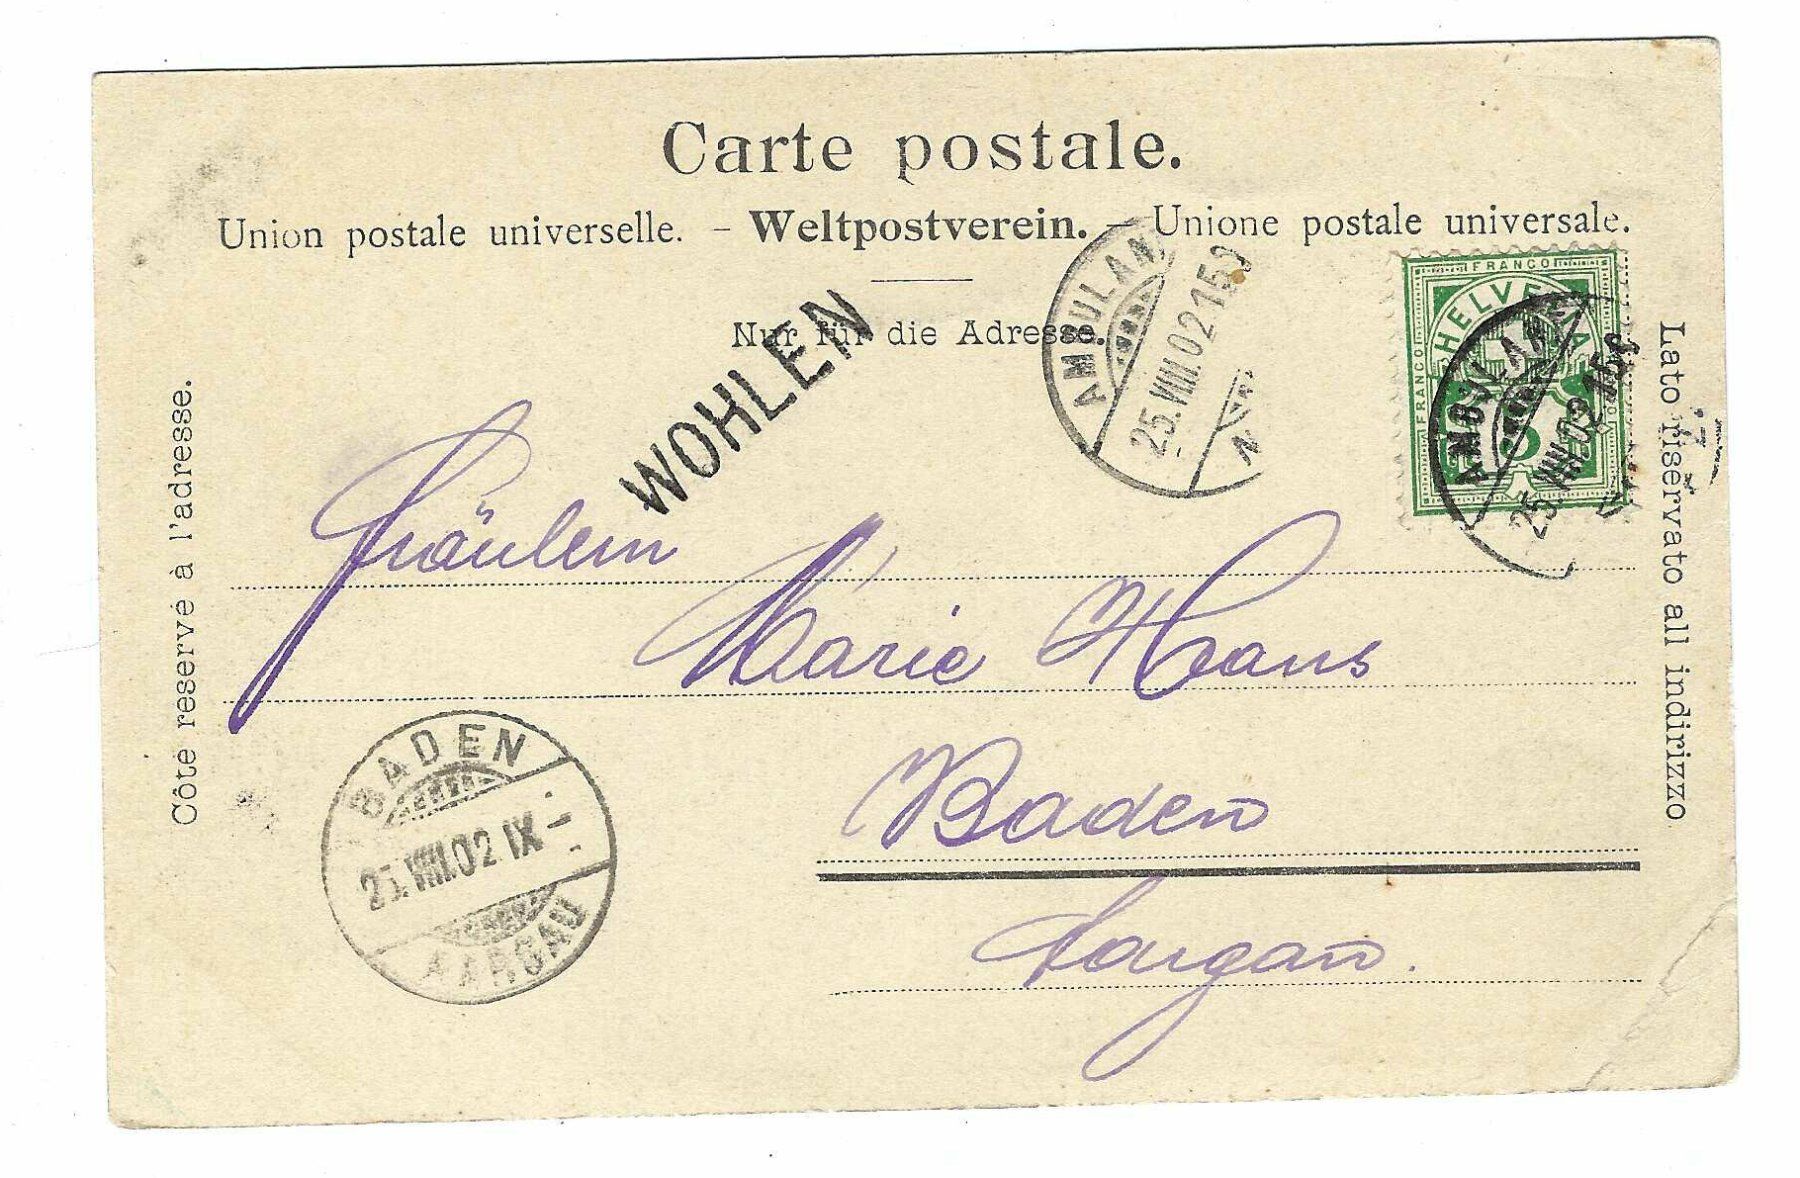 Carte postale.
Union postale universelle. – Weltpostverein. – Unione postale universale.
Nur für die Adresse.
WOHLEN
AMBULANT
25.VIII.02 15
FRANCO
HELVETIA
FRANCO
AMBULANT
25.VIII.02 15
Côte reservé à l'adresse.
Lato riservato all indirizzo
Fräulein
Marie Haas
Baden
Aargau.
BADEN
25.VIII.02 IX
AARGAU